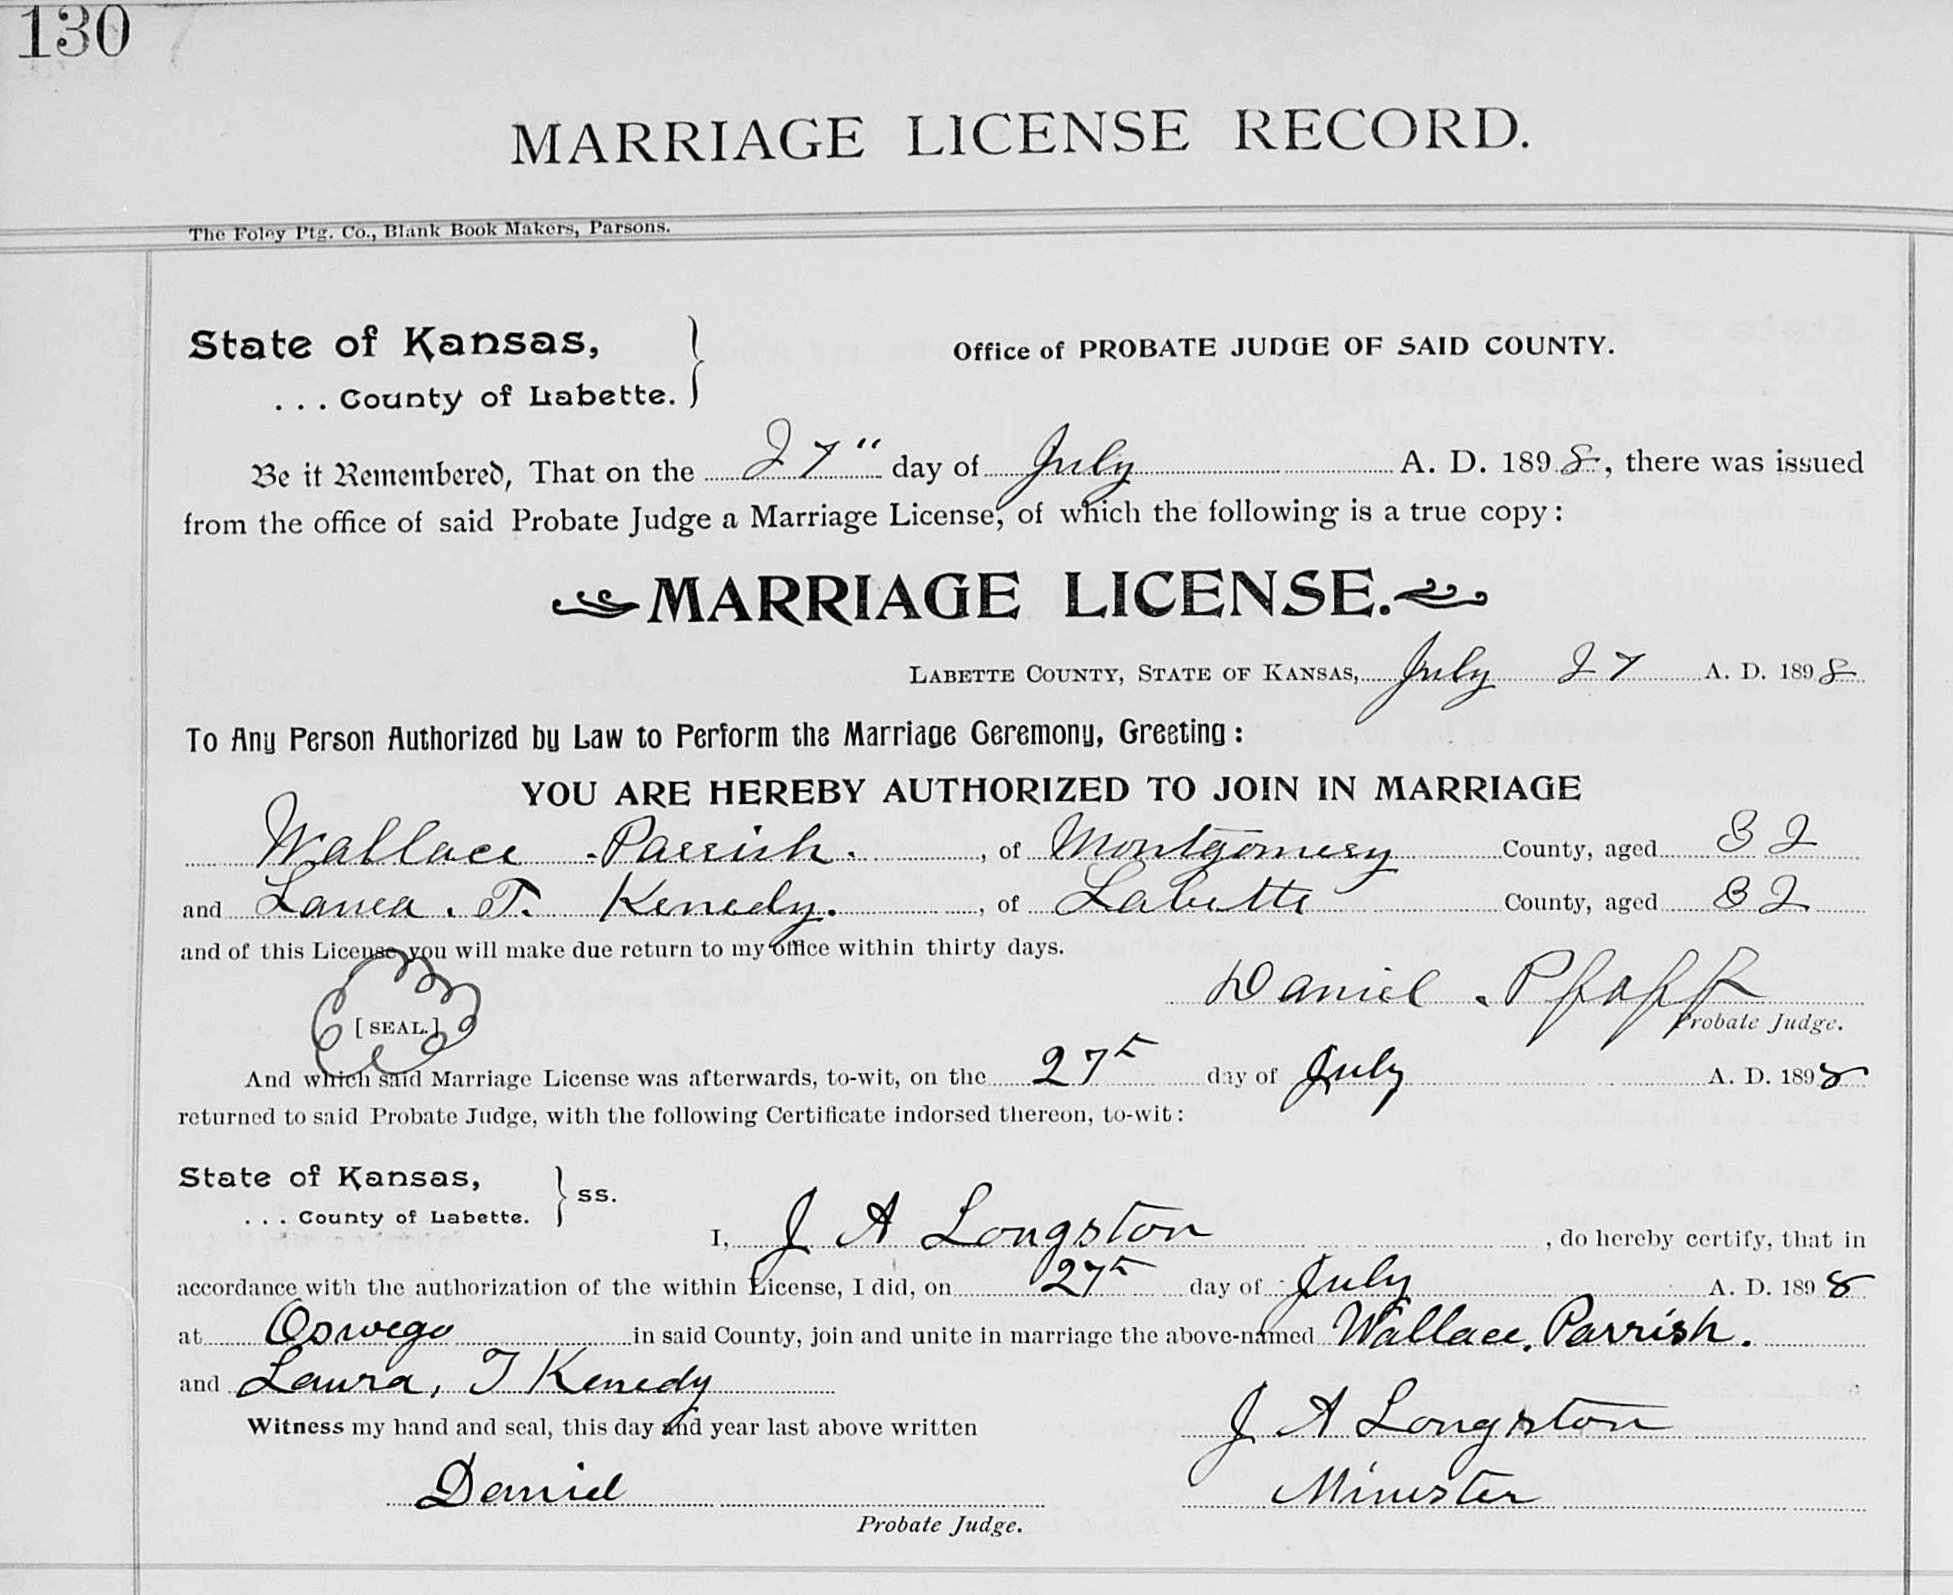 130
MARRIAGE LICENSE RECORD.
The Foley Ptg. Co., Blank Book Makers, Parsons.
State of Kansas,
... County of Labette.
Office of PROBATE JUDGE OF SAID COUNTY.
Be it Remembered, That on the 27" day of July A. D. 1898, there was issued
from the office of said Probate Judge a Marriage License, of which the following is a true copy:
MARRIAGE LICENSE.
LABETTE COUNTY, STATE OF KANSAS, July 27 A. D. 1898
To Any Person Authorized by Law to Perform the Marriage Ceremony, Greeting:
YOU ARE HEREBY AUTHORIZED TO JOIN IN MARRIAGE
Wallace Parrish. , of Montgomery County, aged 32
and Laura. T. Kenedy. , of Labette County, aged 32
and of this License you will make due return to my office within thirty days.
Daniel Pfaff
Probate Judge.
[SEAL.]
And which said Marriage License was afterwards, to-wit, on the 27th day of July A. D. 1898
returned to said Probate Judge, with the following Certificate indorsed thereon, to-wit:
State of Kansas,
... County of Labette. } ss.
I, J A Longston , do hereby certify, that in
accordance with the authorization of the within License, I did, on 27th day of July A. D. 1898
at Oswego in said County, join and unite in marriage the above-named Wallace. Parrish.
and Laura, T Kenedy
Witness my hand and seal, this day and year last above written
J A Longston
Daniel
Minister
Probate Judge.